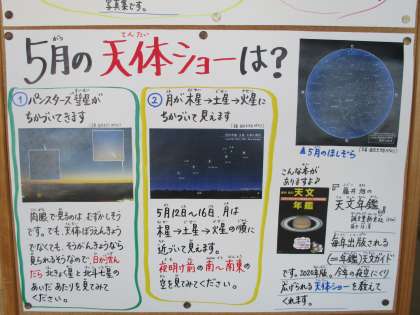 写真集です。
5月の天体ショーは?
てんたい
① パンスターズ彗星が
ちかづいてきます
② 月が木星→土星→火星に
ちかづいて見えます
▲5月のほしぞら
肉眼で見るのはむずかしそう
です。でも、天体ぼうえんきょう
でなくても、そうがんきょうなら
見られるそうなので、日が沈ん
だら北きょく星と北斗七星の
あいだあたりを見てみて
ください。
5月12日～16日、月は
木星→土星→火星の順に
近づいて見えます。
夜明け前の南～南東の
空を見てみてください。
こんな本が
ありますよ♪
天文
年鑑
藤井 旭の
天文年鑑
誠文堂新光社
毎年出版される
(=年鑑)天文ガイド
です。2020年版。今年の夜空にくり
広げられる天体ショーを教えて
くれます。